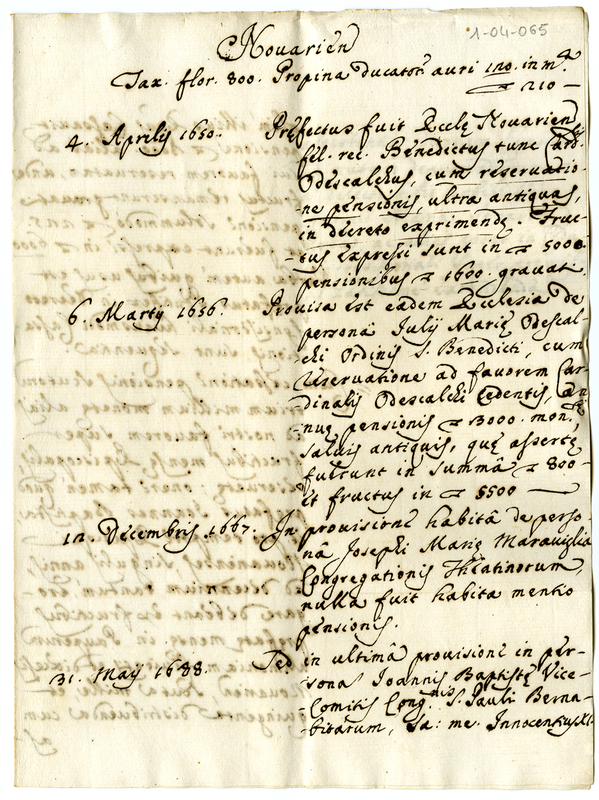 1-04-065
Nouarien
Tax. flor. 800. Propina ducator. auri 120. in m.ta
210 —
4. Aprilis 1650. Prefectus fuit Eccle Nouarien
fel. rec. Benedictus tunc Card.
Odescalchus, cum reseruatio-
ne pensionis, ultra antiquas,
in decreto exprimende. Fruc-
tus expressi sunt in 5000
pensionibus 1600. grauati.
6. Martij 1656. Prouisa est eadem Ecclesia de
personâ Iulij Marie Odescal-
chi Ordinis S. Benedicti, cum
reseruatione ad fauorem Car-
dinalis Odescalchi Cedentis, an-
nue pensionis 3000. mon.te
saluis antiquis, que asserte
fuerunt in summâ 800-
et fructus in 5500 —
12. Decembris 1667. In prouisione habitâ de perso-
nâ Iosephi Marie Marauiglia
Congregationis Theatinorum,
nulla fuit habita mentio
pensionis.
31. Maij 1688. Sed in ultimâ prouisione in per-
sona Ioannis Baptiste Vice-
Comitis Cong.nis S. Pauli Berna-
bitarum, sa: me. Innocentius XI.